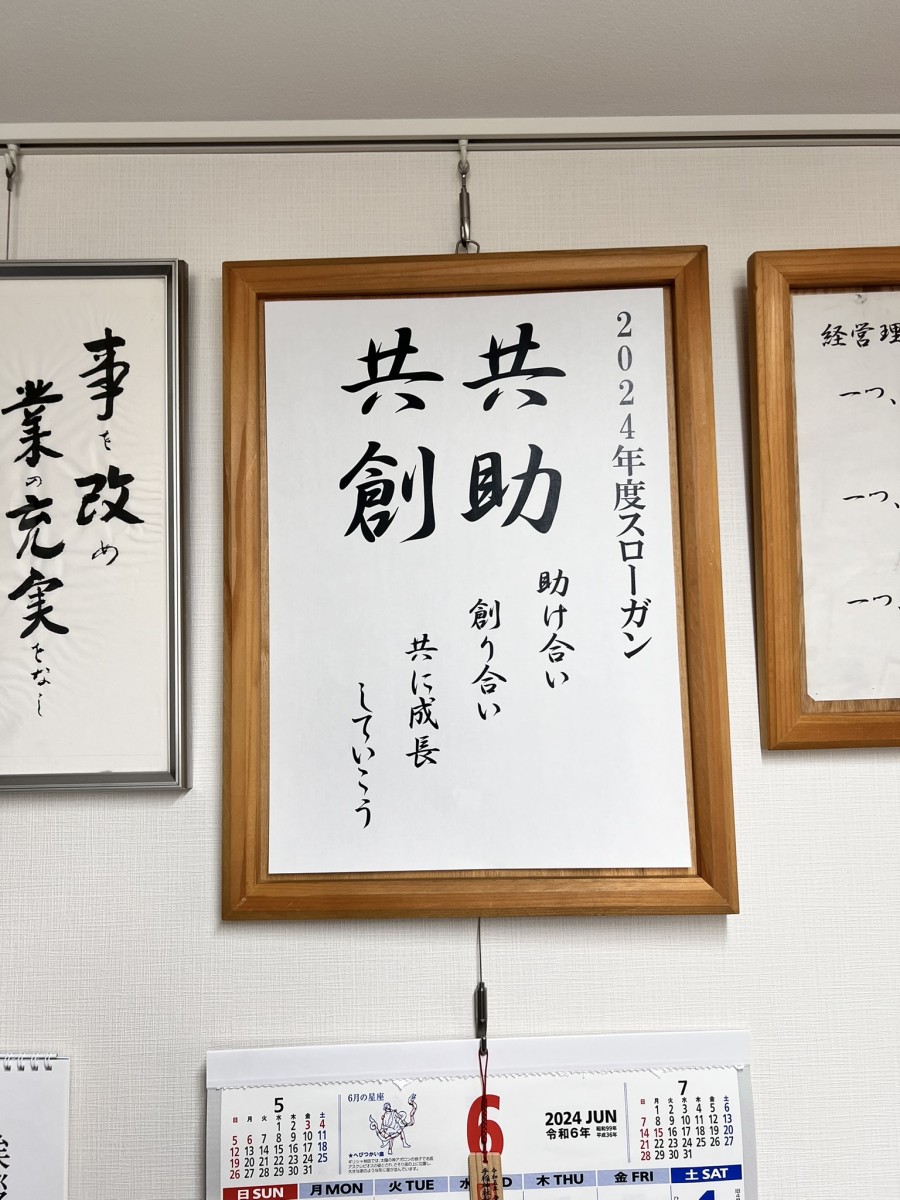 2024年度スローガン
共助
共創
助け合い
創り合い
共に成長
していこう
事を改め
業の充実をなし
経営理
一つ、
一つ、
一つ、
5
日 月 火 水 木 金 土
1 2 3 4
5 6 7 8 9 10 11
12 13 14 15 16 17 18
19 20 21 22 23 24 25
26 27 28 29 30 31
6月の星座
★へびつかい座
6
2024 JUN
令和6年
昭和99年
平成36年
7
日 月 火 水 木 金 土
1 2 3 4 5 6
7 8 9 10 11 12 13
14 15 16 17 18 19 20
21 22 23 24 25 26 27
28 29 30 31
日 SUN
月 MON
火 TUE
木 THU
金 FRI
土 SAT
1